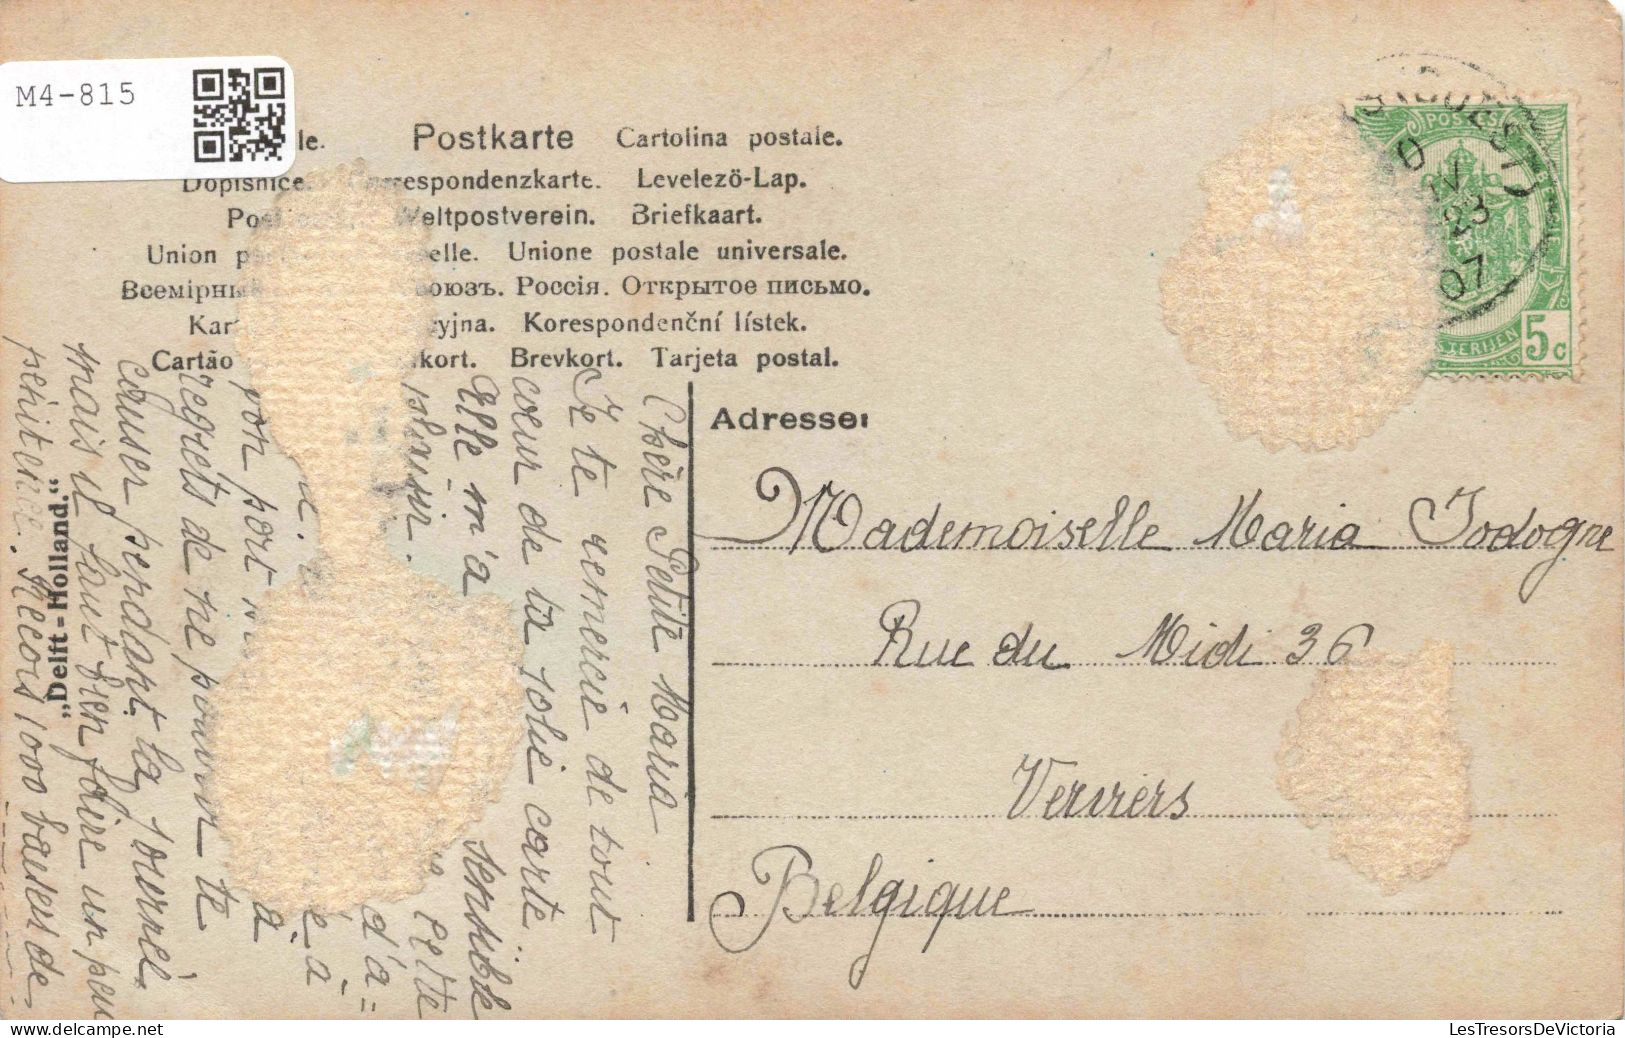 M4-815
le. Postkarte Cartolina postale.
Dopisnice. Correspondenzkarte. Levelezö-Lap.
Weltpostverein. Briefkaart.
Union elle. Unione postale universale.
Всемірны союзъ. Россія. Открытое письмо.
yjna. Korespondenční lístek.
Cartão kort. Brevkort. Tarjeta postal.
Adresse:
Mademoiselle Maria Jodogne
Rue du Midi 36
Verviers
Belgique
POSTES
BELGIE
5c
IV
23
07
„Delft - Holland."
Chère Petite Maria
Je te remercie de tout
cœur de ta jolie carte
Elle m'a sensible
plaisir. Cette
d'a=
é à
pon port à
regrets de ne pouvoir te
causer pendant la journée
mais il faut bien faire un peu
penitence. Recois 1000 baisers de
LesTresorsDeVictoria